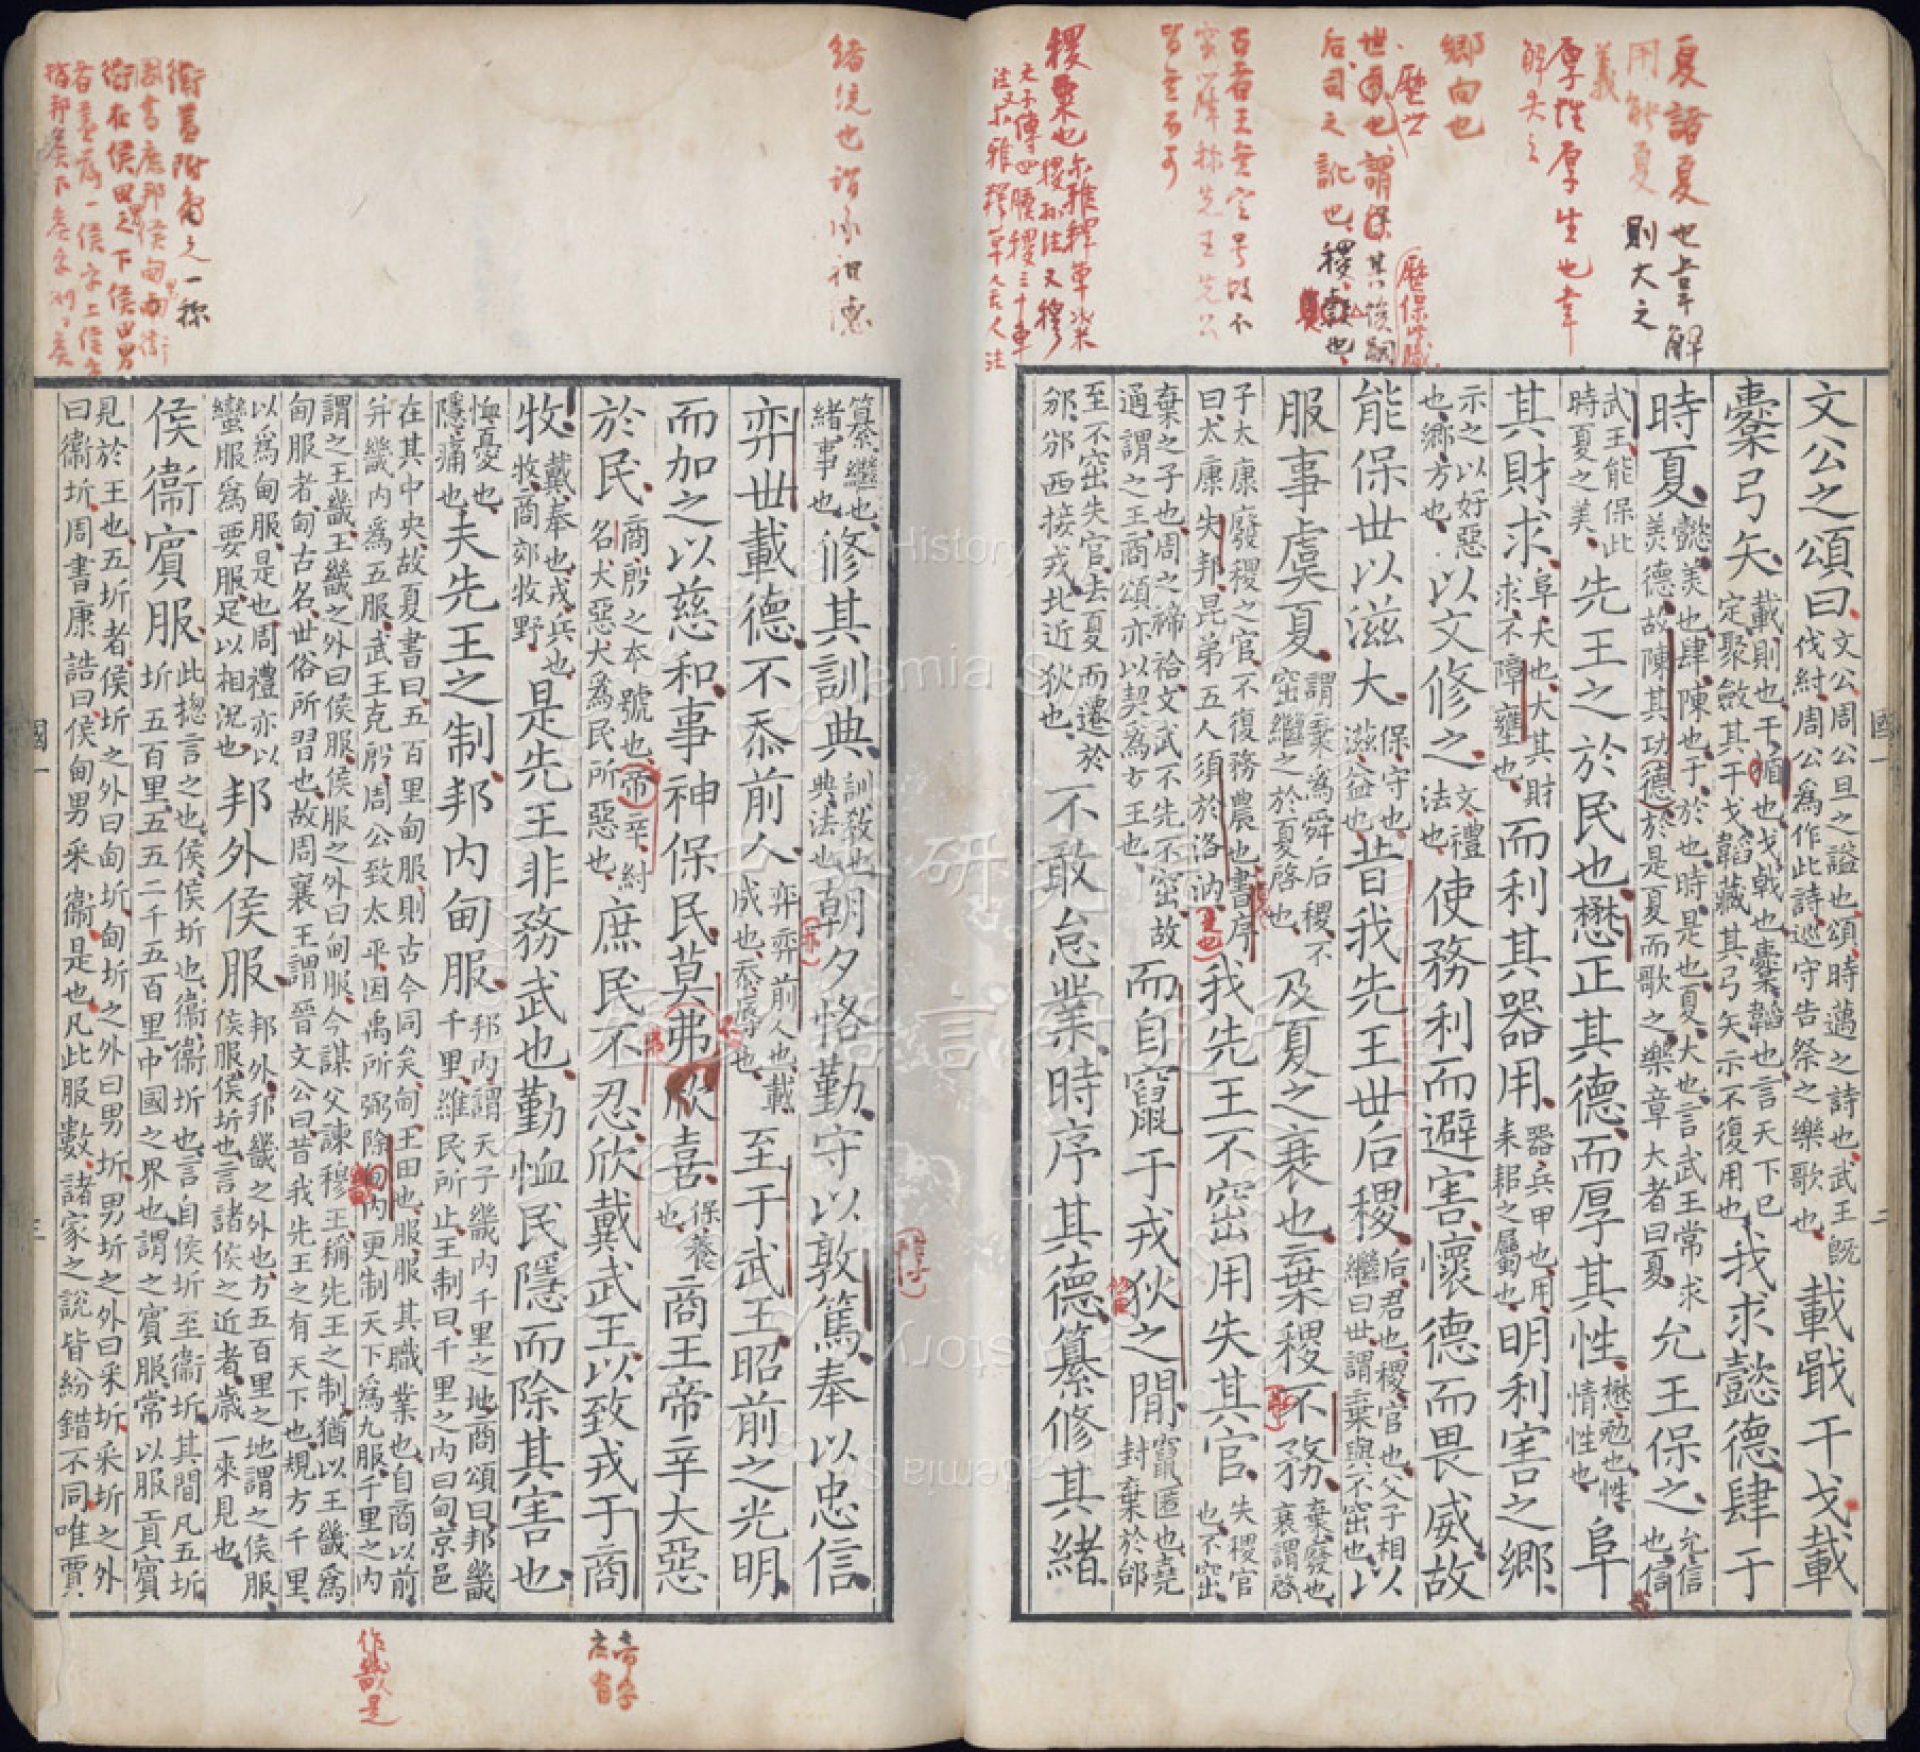 文公之頌曰文公周公旦之謚也頌時邁之詩也武王既伐紂周公爲作此詩巡守告祭之樂歌也載戢干戈載
櫜弓矢載則也干楯也戈戟也櫜韜也言天下已定聚斂其干戈韜藏其弓矢示不復用也我求懿德肆于
時夏懿美也肆陳也于於也時是也夏大也言武王常求美德故陳其功德於是夏而歌之樂章大者曰夏允王保之允信也信
武王能保此時夏之美先王之於民也懋正其德而厚其性懋勉也性情性也阜
其財求阜大也大其財求不障壅也而利其器用器兵甲也用耒耜之屬也明利害之鄉
示之以好惡也鄉方也以文修之文禮法也使務利而避害懷德而畏威故
能保世以滋大保守也滋益也昔我先王世后稷后君也稷官也父子相以繼曰世謂棄與不窋也以
服事虞夏謂棄爲舜后稷不窋繼之於夏啓也及夏之衰也棄稷不務棄廢也衰謂啓
子太康廢稷之官不復務農也書序曰太康失邦昆弟五人須於洛汭我先王不窋用失其官失稷官也不窋
棄之子也周之禘祫文武不先不窋故通謂之王商頌亦以契爲方王也而自竄于戎狄之間竄匿也堯封棄於邰
至不窋失官去夏而遷於邠邠西接戎北近狄也不敢怠業時序其德纂修其緒
纂繼也緒事也修其訓典訓教也典法也朝夕恪勤守以敦篤奉以忠信
弈世載德不忝前人弈弈前人也載成也忝辱也至于武王昭前之光明
而加之以慈和事神保民莫弗欣喜保養也商王帝辛大惡
於民商殷之本號也帝辛紂名大惡大爲民所惡也庶民不忍欣戴武王以致戎于商
牧戴奉也戎兵也牧商郊牧野是先王非務武也勤恤民隱而除其害也
恤憂也隱痛也夫先王之制邦内甸服邦内謂天子畿内千里之地商頌曰邦畿千里維民所止王制曰千里之内曰甸京邑
在其中央故夏書曰五百里甸服則古今同矣甸王田也服服其職業也自商以前并畿内爲五服武王克殷周公致太平因禹所弼除甸内更制天下爲九服千里之内
謂之王畿王畿之外曰侯服侯服之外曰甸服今謀父諫穆王稱先王之制猶以王畿爲甸服者甸古名世俗所習也故周襄王謂晉文公曰昔我先王之有天下也規方千里
以爲甸服是也周禮亦以蠻服爲要服足以相況也邦外侯服邦外邦畿之外也方五百里之地謂之侯服侯服侯圻也言諸侯之近者歲一來見也
侯衞賓服此揔言之也侯侯圻也衞衞圻也言自侯圻至衞圻其間凡五圻圻五百里五五二千五百里中國之界也謂之賓服常以服貢賓
見於王也五圻者侯圻之外曰甸圻甸圻之外曰男圻男圻之外曰采圻采圻之外曰衞圻周書康誥曰侯甸男采衞是也凡此服數諸家之說皆紛錯不同唯賈
國一
二
國一
三
夏諸夏也韋解
用能夏則大之
義
厚性厚生也韋
解失之
鄉向也
后司之訛也
古者王無定号故不
皆無不可
稷粟也
緒統也謂承祖德
作畿是